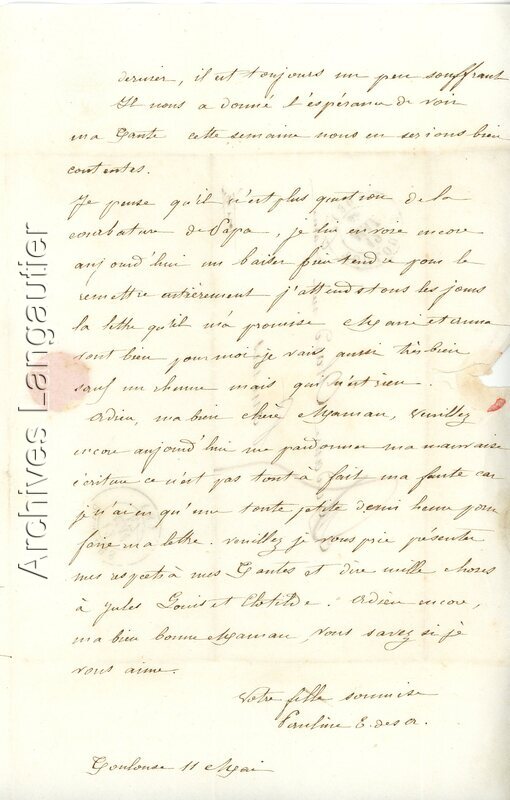 dernier, il est toujours un peu souffrant
Il nous a donné l'espérance de voir
ma Tante cette semaine nous en serions bien
contentes.
Je pense qu'il n'est plus question de la
courbature de Papa, je lui envoie encore
aujourd'hui un baiser bien tendre pour le
remettre entièrement j'attends tous les jours
la lettre qu'il m'a promise Marie et Anna
sont bien pour moi je vais aussi très bien
sauf un rhume mais qui n'est rien.
Adieu, ma bien chère Maman, veuillez
encore aujourd'hui me pardonner ma mauvaise
écriture ce n'est pas tout à fait ma faute car
je n'ai eu qu'une toute petite demi heure pour
faire ma lettre. veuillez je vous prie présenter
mes respects à mes Tantes et dire mille choses
à Jules Louis et Clotilde. Adieu encore,
ma bien bonne Maman, vous savez si je
vous aime.
Votre fille soumise
Pauline E. de
Toulouse 11 Mai
Archives Langautier